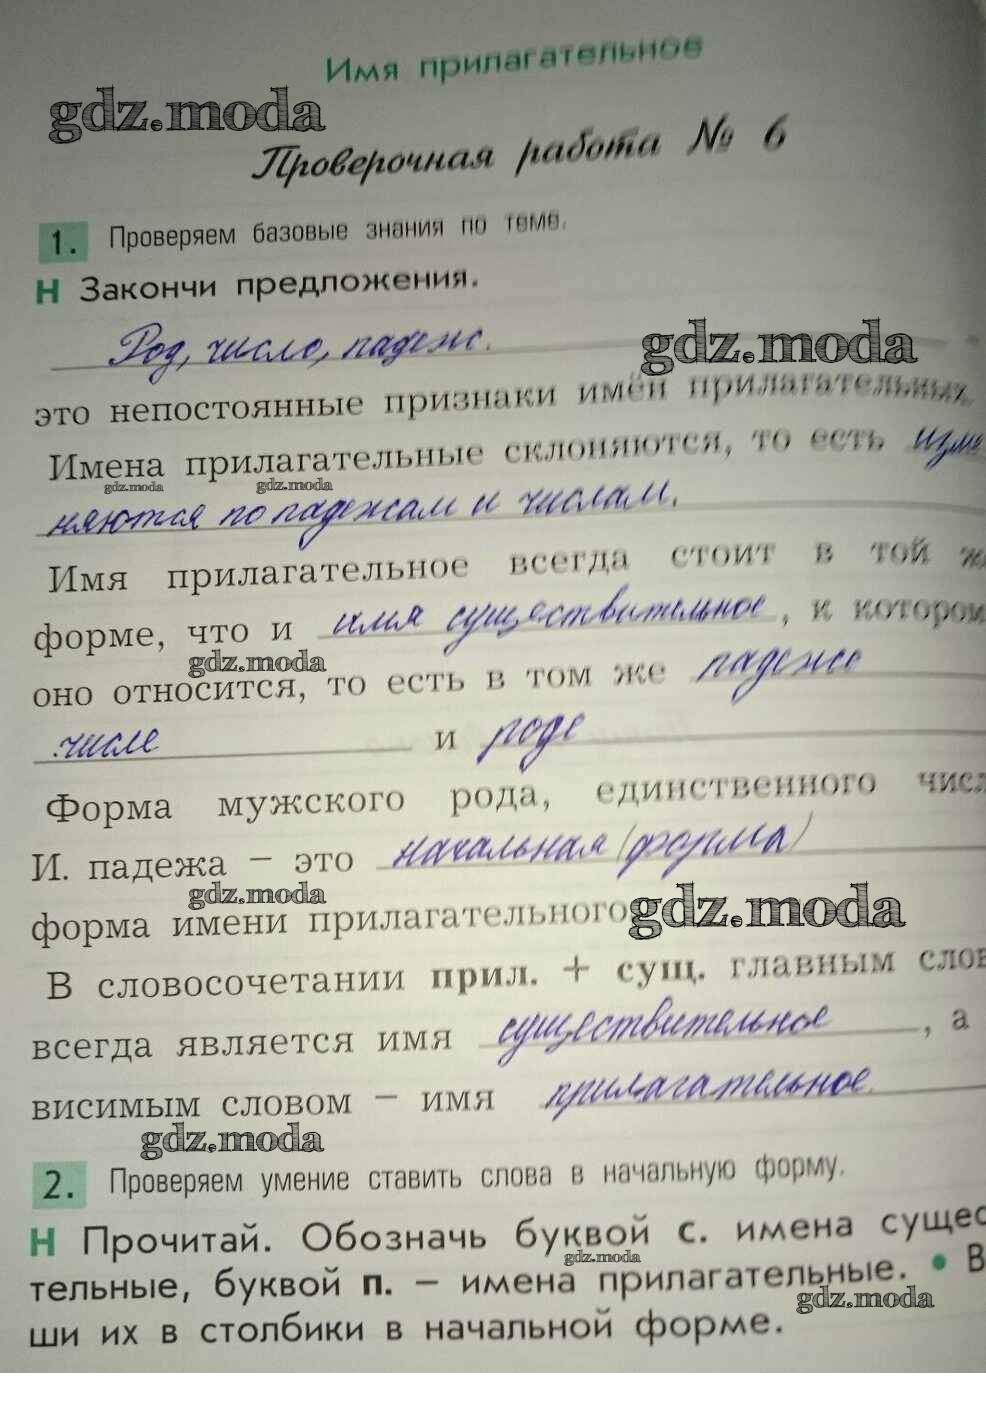 Имя прилагательное
gdz.moda
Проверочная работа № 6
1. Проверяем базовые знания по теме.
Н Закончи предложения.
Род, число, падеж.
gdz.moda
это непостоянные признаки имён прилагательных.
Имена прилагательные склоняются, то есть изме
gdz.moda gdz.moda
няются по падежам и числам.
Имя прилагательное всегда стоит в той ж
форме, что и имя существительное, к котором
gdz.moda
оно относится, то есть в том же падеже
числе и роде
Форма мужского рода, единственного числ
И. падежа – это начальная (форма)
gdz.moda
форма имени прилагательного
gdz.moda
В словосочетании прил. + сущ. главным слов
всегда является имя существительное, а
висимым словом – имя прилагательное.
gdz.moda
2. Проверяем умение ставить слова в начальную форму.
Н Прочитай. Обозначь буквой с. имена сущес
gdz.moda
тельные, буквой п. – имена прилагательные. • В
gdz.moda
ши их в столбики в начальной форме.